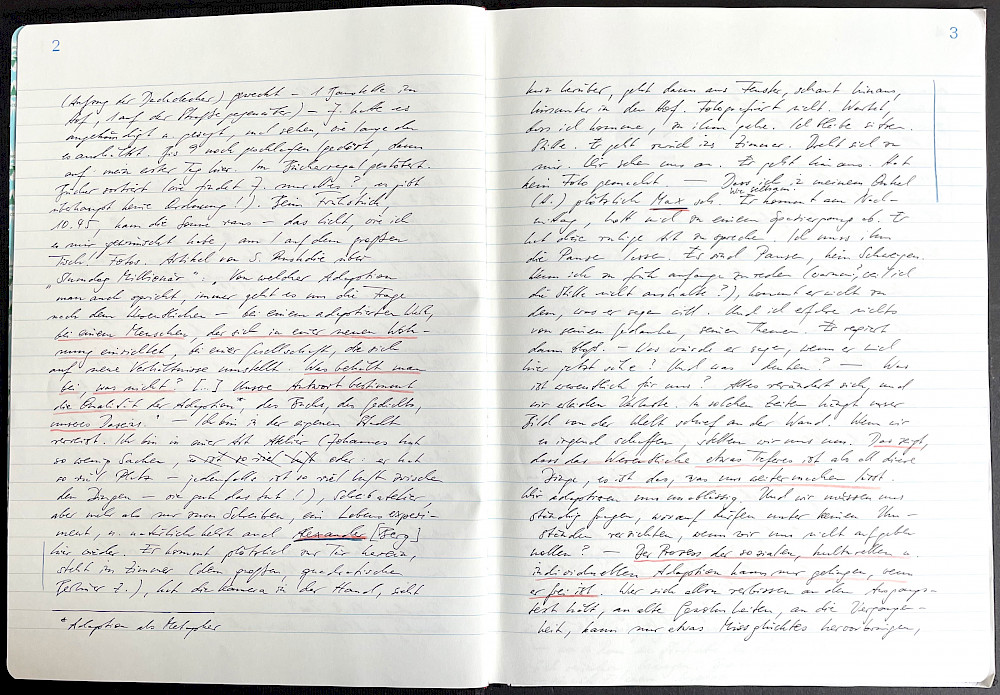 2
(Anfang der Dachdecker) geweckt – 1 Baustelle im
Hof, 1 auf der Straße gegenüber) – J. hatte es
angekündigt u. gesagt, mal sehen, wie lange du
es aushältst. Bis 9 noch geschlafen / gedöst, dann
auf, mein erster Tag hier. Im Bücherregal gestöbert
Bücher sortiert (wie findet J. nur alles?, es gibt
überhaupt keine Ordnung!). Beim Frühstück,
10.45, kam die Sonne raus – das Licht, wie ich
es mir gewünscht habe, am / auf dem großen
Tisch! Fotos. Artikel von S. Rushdie über
„Slumdog Millionär“: „Von welcher Adaption
man auch spricht, immer geht es um die Frage
nach dem Wesentlichen – bei einem adaptierten Werk,
bei einem Menschen, der sich in einer neuen Woh-
nung einrichtet, bei einer Gesellschaft, die sich
auf neue Verhältnisse umstellt. Was behält man
bei, was nicht? [...] Unsere Antwort bestimmt
die Qualität der Adaption*, des Buchs, des Gedichts,
unseres Daseins.“ – Ich bin in der eigenen Stadt
verreist. Ich bin in einer Art Atelier (Johannes hat
so wenig Sachen, es ist so viel Luft oder: er hat
so viel Platz – jedenfalls ist so viel Luft zwischen
den Dingen – wie gut das tut!), Schreibatelier,
aber mehr als nur zum Schreiben, ein Lebensexperi-
ment, u. natürlich kehrt auch Alexander [Berg]
hier wieder. Er kommt plötzlich zur Tür herein,
steht im Zimmer (dem großen, quadratischen
Berliner Z.), hat die Kamera in der Hand, sieht
* Adaption als Metapher
3
kurz herüber, geht dann ans Fenster, schaut hinaus,
hinunter in den Hof. Fotografiert nicht. Wartet,
dass ich komme, zu ihm gehe. Ich bleibe sitzen.
Stille. Er geht zurück ins Zimmer. Dreht sich zu
mir. Wir sehen uns an. Er geht hinaus. Hat
kein Foto gemacht. — Dass ich in meinem Onkel
(A.) plötzlich Max seh. Er kommt am Nach-
wie selbigen
mittag, holt mich zu einem Spaziergang ab. Er
hat diese ruhige Art zu sprechen. Ich muss ihm
die Pausen lassen. Es sind Pausen, kein Schweigen.
Wenn ich zu früh anfange zu reden (warum, weil ich
die Stille nicht aushalte?), kommt er nicht zu
dem, was er sagen will. Und ich erfahre nichts
von seinen Gedanken, seinen Themen. Er reagiert
dann bloß. – Was würde er sagen, wenn er mich
hier jetzt sähe! Und was denken? — Was
ist wesentlich für uns? Alles verändert sich, und
wir erleiden Verluste. In solchen Zeiten hängt unser
Bild von der Welt schief an der Wand. Wenn wir
es irgend schaffen, stellen wir uns um. Das zeigt,
dass das Wesentliche etwas Tieferes ist als all diese
Dinge, es ist das, was uns weitermachen lässt.
Wir adaptieren uns unablässig. Und wir müssen uns
ständig fragen, worauf dürfen unter keinen Um-
ständen verzichten, wenn wir uns nicht aufgeben
wollen? – Der Prozess der sozialen, kulturellen u.
individuellen Adaption kann nur gelingen, wenn
er frei ist. Wer sich allzu verbissen an den Ausgangs-
text hält, an alte Gewohnheiten, an die Vergangen-
heit, kann nur etwas Missglücktes hervorbringen,